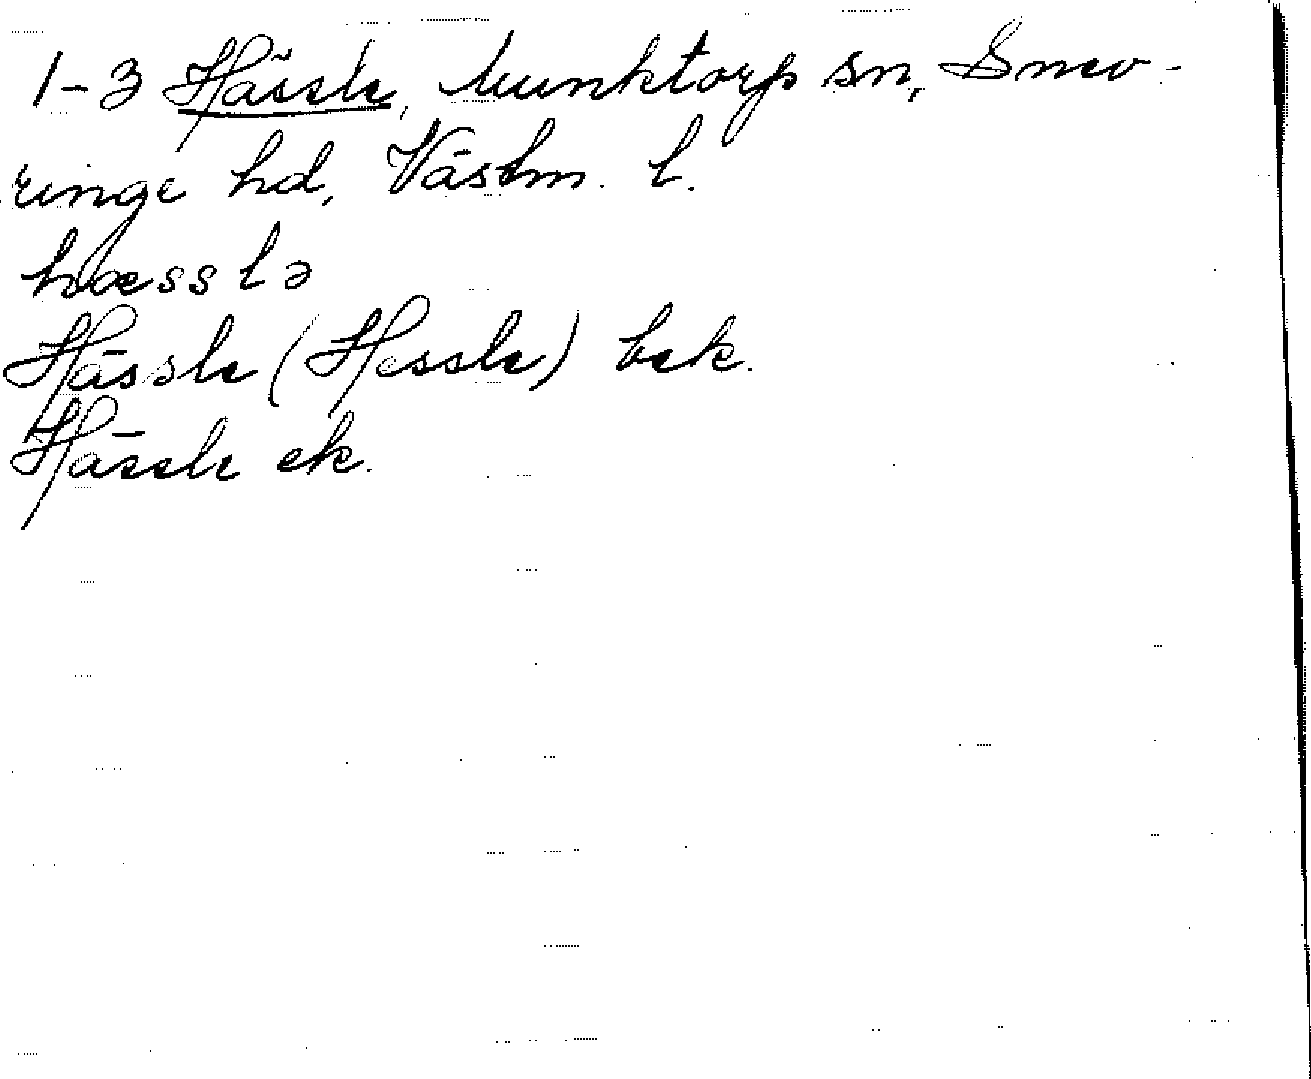 1-3 Hässle, Munktorp sn, Snev-
ringe hd, Västm. l.
hæsslə
Hässle (Hessle) bek.
Hässle ek.